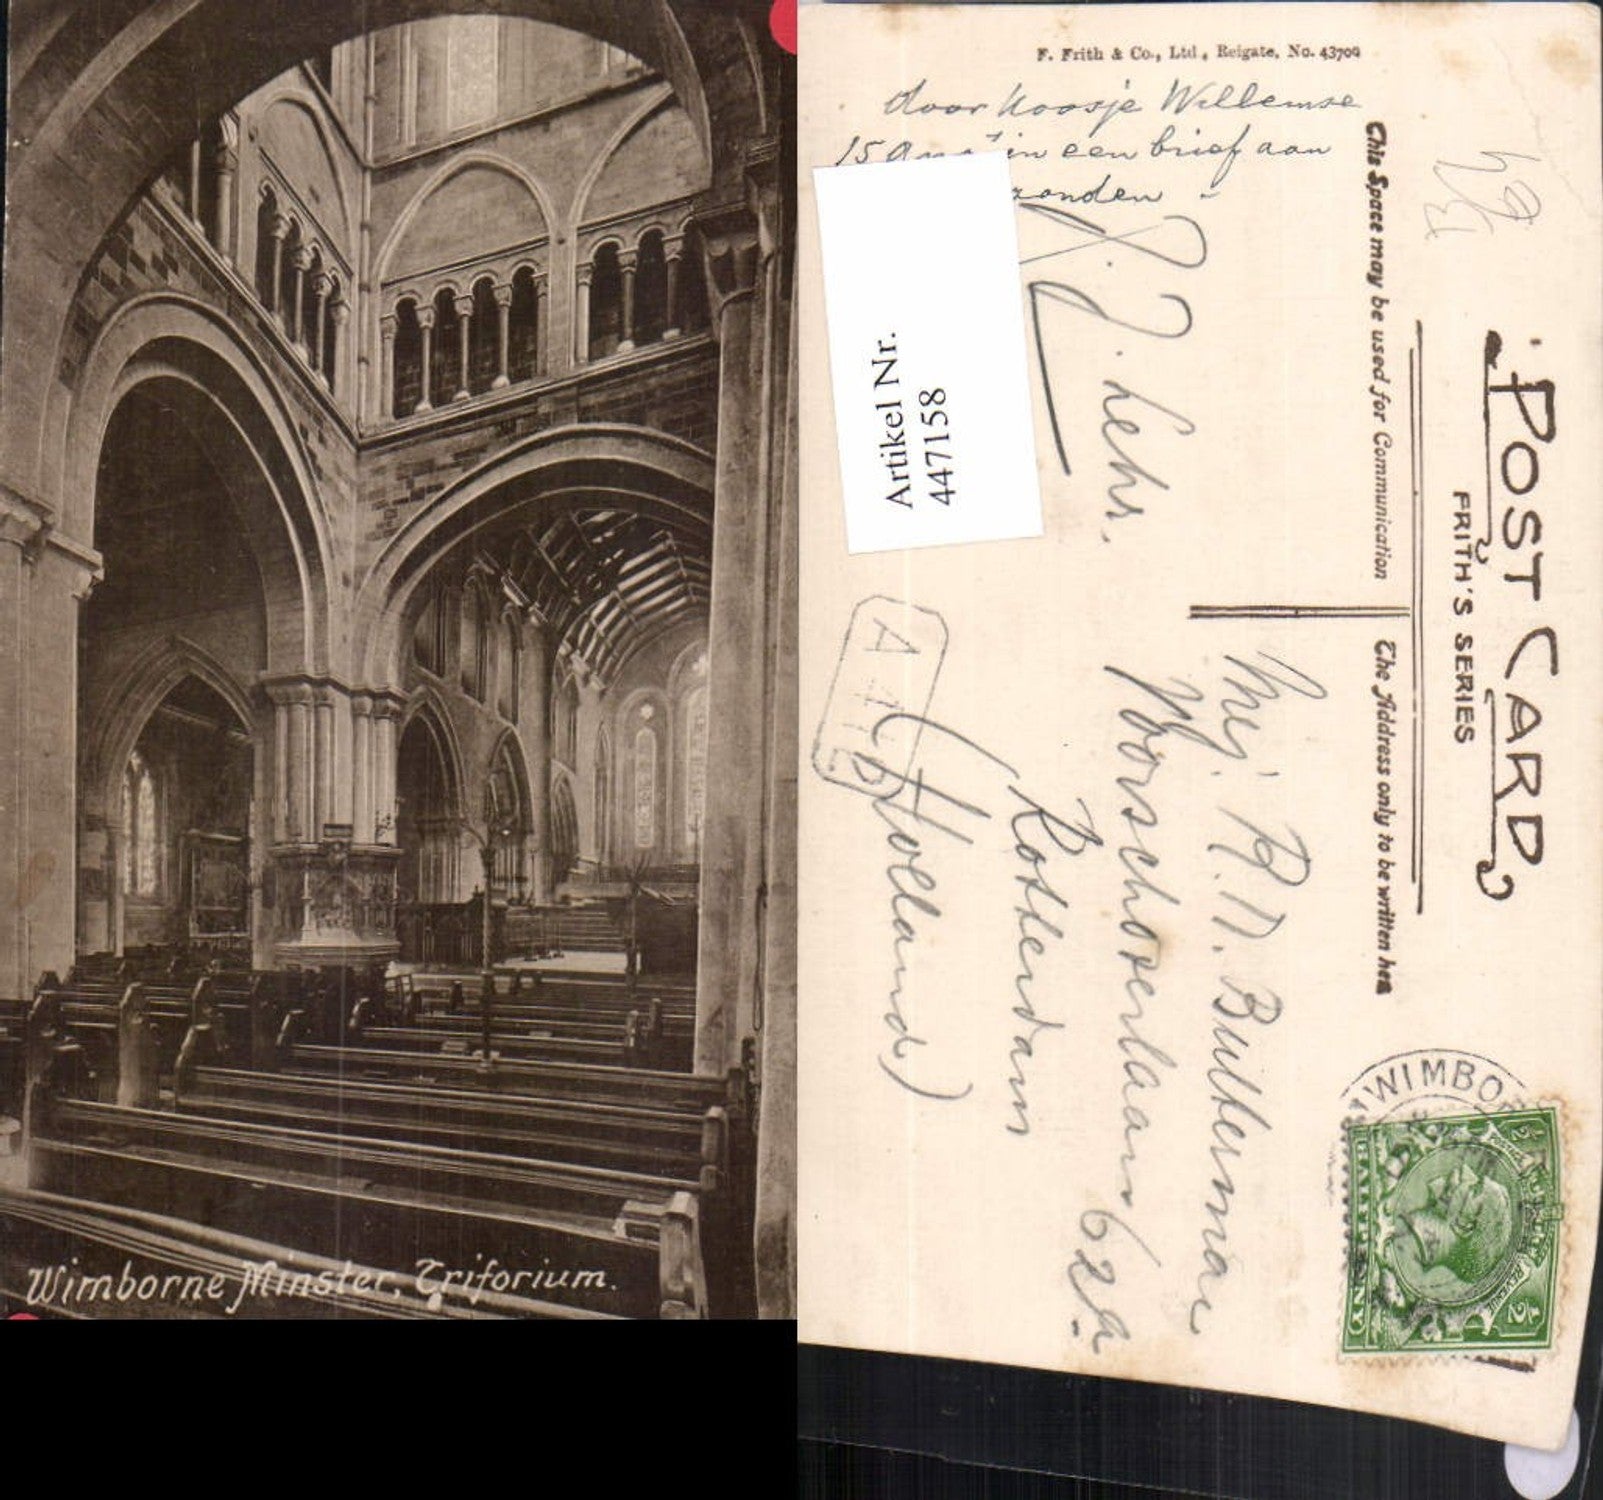 Wimborne Minster, Triforium.
F. Frith & Co., Ltd., Reigate, No. 43709
door Koosje Willemse
15 in een brief aan
zonden
This Space may be used for Communication
The Address only to be written here
POST CARD
FRITH'S SERIES
Artikel Nr.
447158
Mej. R. N. Bulterman
Voorschoterlaan 62a
Rotterdam
(Holland)
WIMBO
HALFPENNY